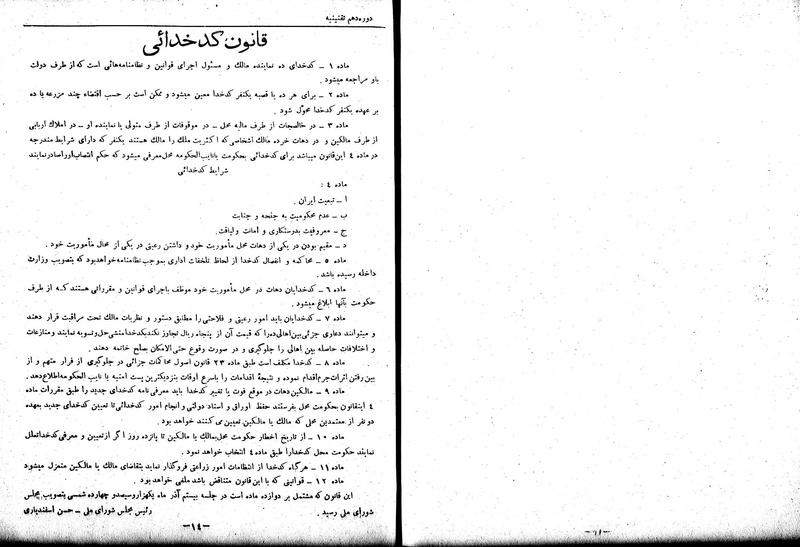 دوره دهم تقنینیه
قانون کدخدائی
ماده ۱ ـ کدخدای ده نماینده مالک و مسئول اجرای قوانین و نظامنامه‌هائی است که از طرف دولت
باو مراجعه میشود .
ماده ۲ ـ برای هر ده یا قصبه یکنفر کدخدا معین میشود و ممکن است بر حسب اقتضاء چند مزرعه یا ده
بر عهده یکنفر کدخدا محول شود .
ماده ۳ ـ در خالصجات از طرف مالیه محل ـ در موقوفات از طرف متولی یا نماینده او ـ در املاک اربابی
از طرف مالکین و در دهات خرده مالک اشخاصی که اکثریت ملک را مالک هستند یکنفر که دارای شرایط مندرجه
در ماده ٤ این قانون میباشد برای کدخدائی بحکومت یا نایب‌الحکومه محل معرفی میشود که حکم انتصاب او را صادر نمایند
شرایط کدخدائی
ماده ٤ :
ا ـ تبعیت ایران .
ب ـ عدم محکومیت به جنحه و جنایت
ج ـ معروفیت بدرستکاری و امانت ولیاقت .
د ـ مقیم بودن در یکی از دهات محل مأموریت خود و داشتن رعیتی در یکی از محال مأموریت خود .
ماده ۵ ـ محاکمه و انفصال کدخدا از لحاظ تخلفات اداری بموجب نظامنامه خواهد بود که بتصویب وزارت
داخله رسیده باشد .
ماده ٦ ـ کدخدایان دهات در محل مأموریت خود موظف باجرای قوانین و مقرراتی هستند کـه از طرف
حکومت بآنها ابلاغ میشود .
ماده ۷ ـ کدخدایان باید امور رعیتی و فلاحتی را مطابق دستور و نظریات مالک تحت مراقبت قرار دهند
و میتوانند دعاوی جزئی بین اهالی ده را که قیمت آن از پنجاه ریال تجاوز نکند بکدخدامنشی حل و تسویه نمایند و منازعات
و اختلافات حاصله بین اهالی را جلوگیری و در صورت وقوع حتی‌الامکان بصلح خاتمه دهند .
ماده ۸ ـ کدخدا مکلف است طبق ماده ۲۳ قانون اصول محاکمات جزائی در جلوگیری از فرار متهم و از
بین رفتن اثرات جرم اقدام نموده و نتیجهٔ اقدامات را باسرع اوقات بنزدیکترین پست امنیه یا نایب الحکومه اطلاع دهد .
ماده ۹ ـ مالکین دهات در موقع فوت یا تغییر کدخدا باید معرفی نامه کدخدای جدید را طبق مقررات ماده
٤ اینقانون بحکومت محل بفرستند حفظ اوراق و اسناد دولتی و انجام امور کدخدائی تا تعیین کدخدای جدید بعهده
دو نفر از معتمدین محلی که مالک یا مالکین تعیین می کنند خواهد بود .
ماده ۱۰ ـ از تاریخ اخطار حکومت محل بمالک یا مالکین تا پانزده روز اگر از تعیین و معرفی کدخدا تعلل
نمایند حکومت محل کدخدا را طبق ماده ٤ انتخاب خواهد نمود .
ماده ۱۱ ـ هرگاه کدخدا از انتظامات امور زراعتی فروگذار نماید بتقاضای مالک یا مالکین منعزل میشود
ماده ۱۲ ـ قوانینی که با این قانون متناقض باشد ملغی خواهد بود .
این قانون که مشتمل بر دوازده ماده است در جلسه بیستم آذر ماه یکهزار و سیصد و چهارده شمسی بتصویب مجلس
شورای ملی رسید . رئیس مجلس شورای ملی ـ حسن اسفندیاری
ـ۱٤ـ